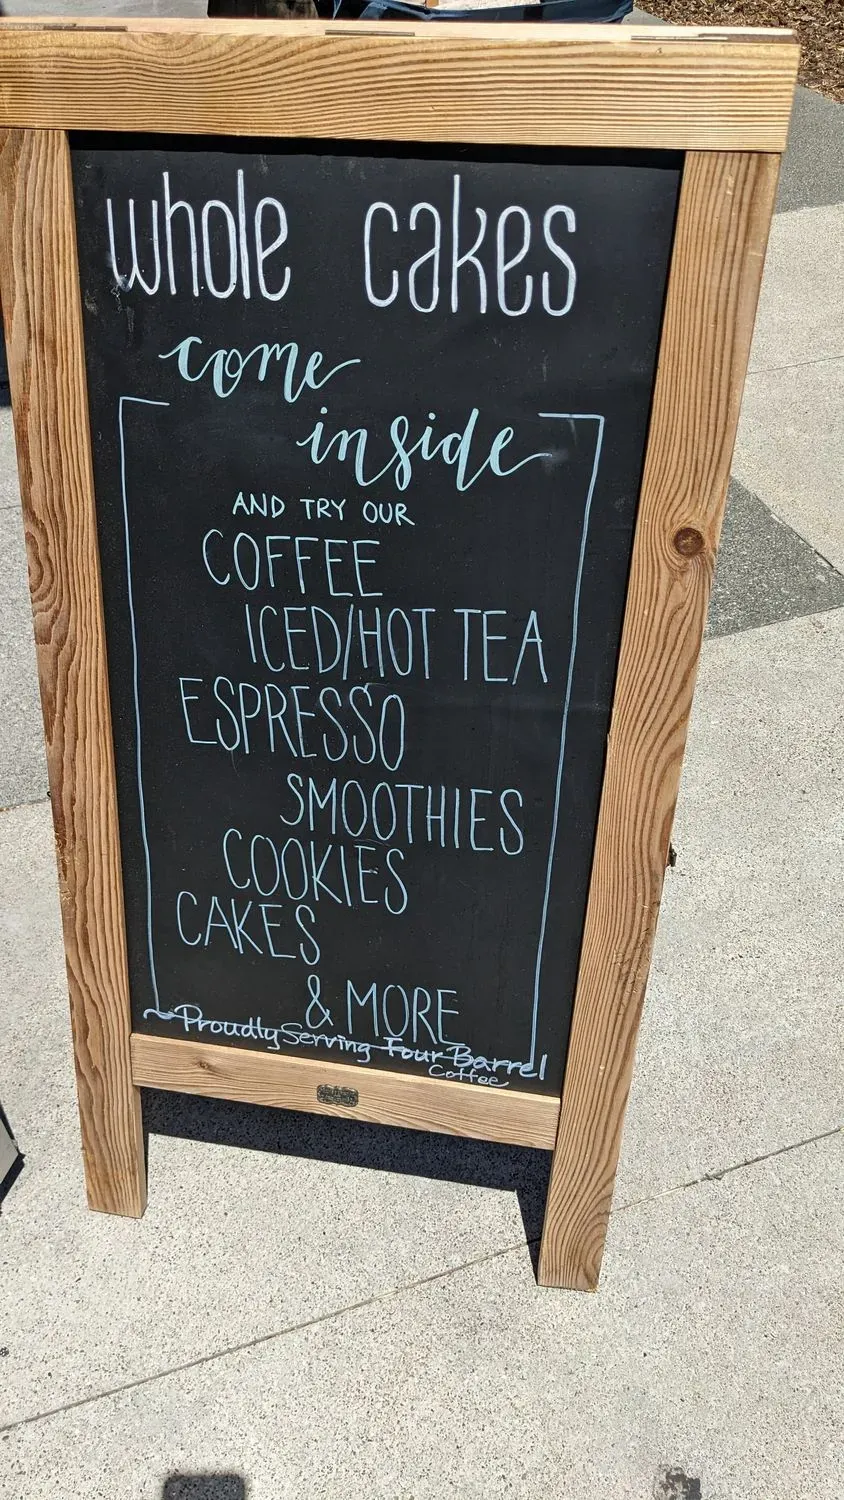 whole cakes
come
inside
AND TRY OUR
COFFEE
ICED/HOT TEA
ESPRESSO
SMOOTHIES
COOKIES
CAKES
& MORE
~Proudly Serving Four Barrel
Coffee